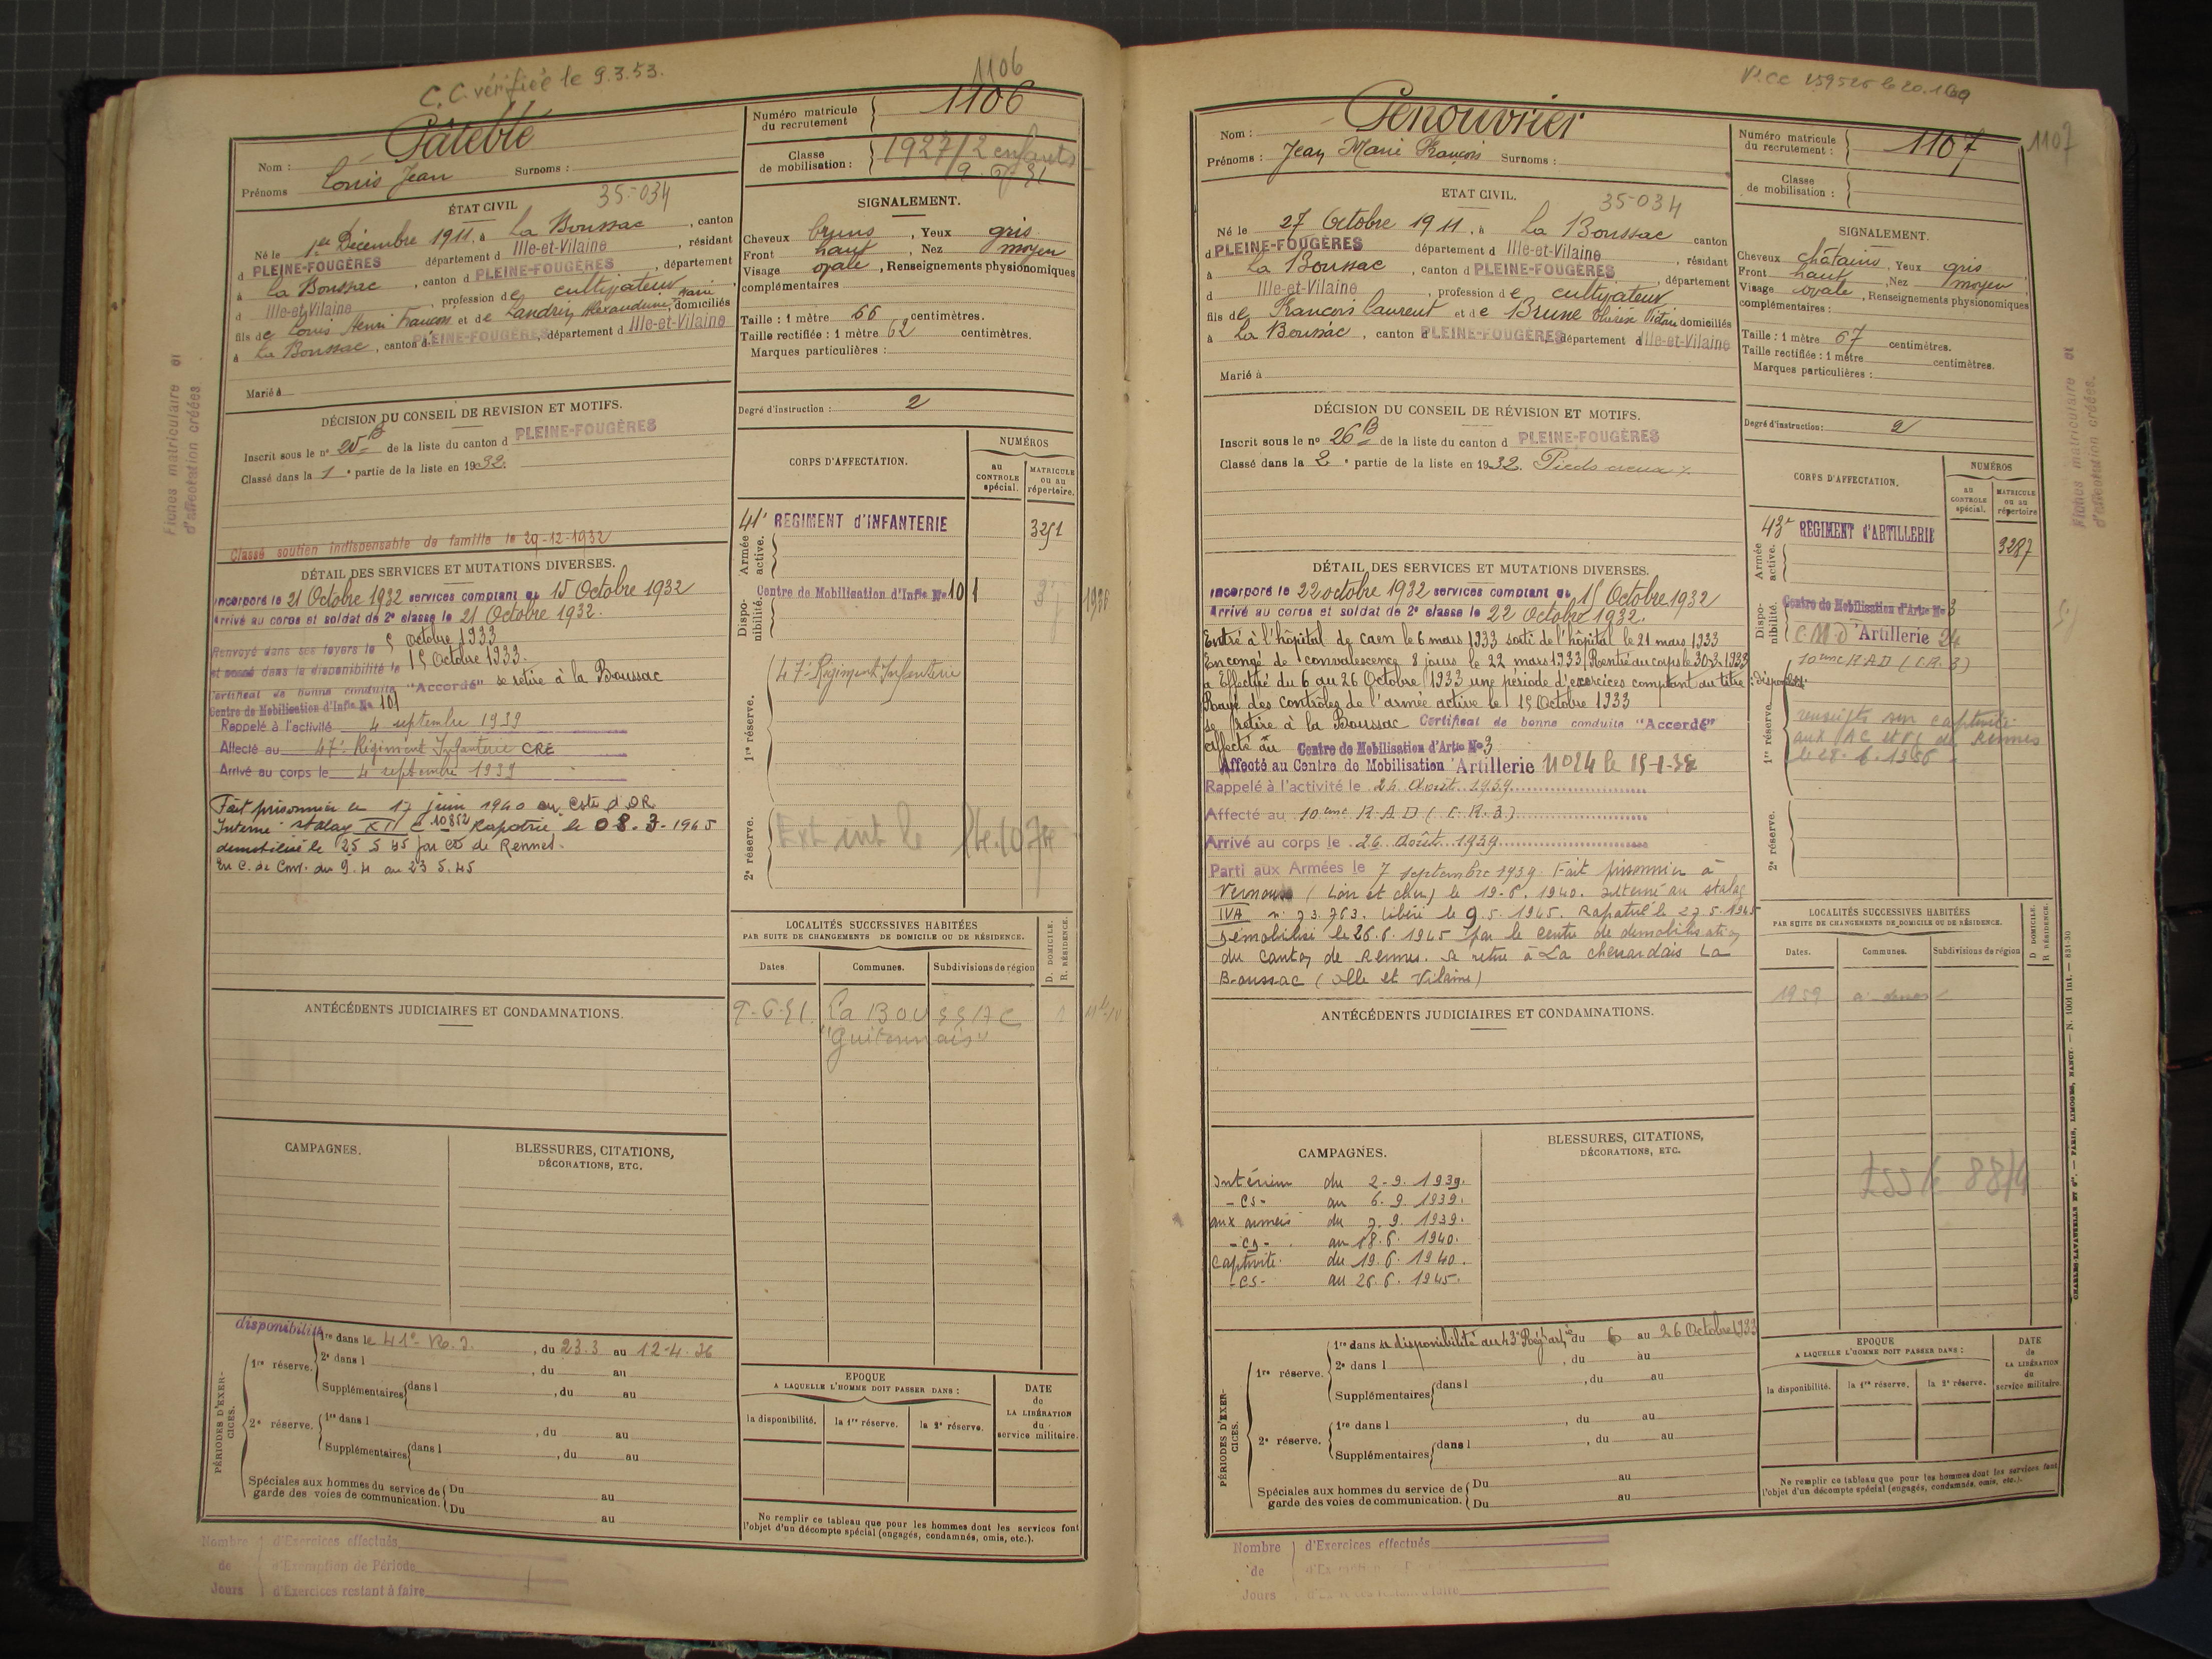 C.C. vérifiée le 9.3.53.
1106
Nom : Pâteblé
Prénoms Louis Jean Surnoms :
Numéro matricule du recrutement 1106
Classe de mobilisation : 1927/2 enfants
ÉTAT CIVIL 35-034
Né le 1er Décembre 1911, à La Boussac, canton
d PLEINE-FOUGÈRES département d Ille-et-Vilaine, résidant
à La Boussac, canton d PLEINE-FOUGÈRES, département
d Ille-et-Vilaine, profession de cultivateur
fils de Louis Henri François et de Landrin Alexandrine Marie, domiciliés
à La Boussac, canton d PLEINE-FOUGÈRES, département d Ille-et-Vilaine
Marié à
SIGNALEMENT.
Cheveux bruns, Yeux gris
Front haut, Nez moyen
Visage ovale, Renseignements physionomiques
complémentaires
Taille : 1 mètre 66 centimètres.
Taille rectifiée : 1 mètre 62 centimètres.
Marques particulières :
Degré d'instruction : 2
DÉCISION DU CONSEIL DE REVISION ET MOTIFS.
Inscrit sous le n° 25 B de la liste du canton d PLEINE-FOUGÈRES
Classé dans la 1e partie de la liste en 1932.
Classé soutien indispensable de famille le 29-12-1932
DÉTAIL DES SERVICES ET MUTATIONS DIVERSES.
Incorporé le 21 Octobre 1932 services comptant du 15 Octobre 1932
Arrivé au corps et soldat de 2e classe le 21 Octobre 1932.
Renvoyé dans ses foyers le 5 Octobre 1933
et passé dans la disponibilité le 15 Octobre 1933.
Certificat de bonne conduite "Accordé" se retire à la Boussac
Centre de Mobilisation d'Infie No 101
Rappelé à l'activité 4 septembre 1939
Affecté au 47e Régiment Infanterie CRE
Arrivé au corps le 4 septembre 1939
Fait prisonnier le 17 juin 1940 en Cote d'OR
Interné stalag XII C 10852 Rapatrié le 08.3-1945
demobilisé le 25 5 45 par CD de Rennes.
En C. de Conv. du 9.4 au 23 5.45
CORPS D'AFFECTATION.
NUMÉROS
au CONTROLE spécial.
MATRICULE ou au répertoire.
Armée active.
41e REGIMENT d'INFANTERIE 3251
Disponibilité.
Centre de Mobilisation d'Infie No 101
1re réserve.
47e Régiment Infanterie
2e réserve.
LOCALITÉS SUCCESSIVES HABITÉES
PAR SUITE DE CHANGEMENTS DE DOMICILE OU DE RÉSIDENCE.
D. DOMICILE.
R. RÉSIDENCE.
Dates Communes. Subdivisions de région
9-6-51. La BOUSSAC
ANTÉCÉDENTS JUDICIAIRES ET CONDAMNATIONS.
CAMPAGNES.
BLESSURES, CITATIONS, DÉCORATIONS, ETC.
PÉRIODES D'EXERCICES.
disponibilité
1re réserve. 1re dans le 41e R.I., du 23.3 au 12-4.36
2e dans l , du au
Supplémentaires dans l , du au
2e réserve. 1re dans l , du au
Supplémentaires dans l , du au
Spéciales aux hommes du service de garde des voies de communication. Du au
Du au
EPOQUE
A LAQUELLE L'HOMME DOIT PASSER DANS :
la disponibilité. la 1re réserve. la 2e réserve.
DATE de LA LIBÉRATION du service militaire.
Ne remplir ce tableau que pour les hommes dont les services font
l'objet d'un décompte spécial (engagés, condamnés, omis, etc.).
Nombre de Jours
d'Exercices effectués
d'Exemption de Période
d'Exercices restant à faire
Fiches matriculaire et d'affectation créées
1107
Nom : Genouvrier
Prénoms : Jean Marie François Surnoms :
Numéro matricule du recrutement : 1107
Classe de mobilisation :
ETAT CIVIL. 35-034
Né le 27 Octobre 1911, à La Boussac canton
d PLEINE-FOUGÈRES département d Ille-et-Vilaine, résidant
à La Boussac, canton d PLEINE-FOUGÈRES, département
d Ille-et-Vilaine, profession de cultivateur
fils de François Laurent et de Brune Thérèse Victoire domiciliés
à La Boussac, canton d PLEINE-FOUGÈRES, département d Ille-et-Vilaine
Marié à
SIGNALEMENT.
Cheveux châtains, Yeux gris
Front haut, Nez moyen
Visage ovale, Renseignements physionomiques
complémentaires :
Taille : 1 mètre 67 centimètres.
Taille rectifiée : 1 mètre centimètres.
Marques particulières :
Degré d'instruction : 2
DÉCISION DU CONSEIL DE RÉVISION ET MOTIFS.
Inscrit sous le n° 26 B de la liste du canton d PLEINE-FOUGÈRES
Classé dans la 2e partie de la liste en 1932. Pieds creux
DÉTAIL DES SERVICES ET MUTATIONS DIVERSES.
Incorporé le 22 octobre 1932 services comptant du 15 Octobre 1932
Arrivé au corps et soldat de 2e classe le 22 Octobre 1932.
Entré à l'hôpital de Caen le 6 mars 1933 sorti de l'hôpital le 21 mars 1933
En congé de convalescence 8 jours le 22 mars 1933 Rentré au corps le 30-3-1933
a Effectué du 6 au 26 Octobre 1933 une période d'exercices comptant au titre disponibil.
Rayé des contrôles de l'armée active le 15 Octobre 1933
se retire à la Boussac Certificat de bonne conduite "Accordé"
affecté au Centre de Mobilisation d'Artie No 3
Affecté au Centre de Mobilisation Artillerie No 24 le 15-1-38
Rappelé à l'activité le 24 Août 1939
Affecté au 10eme R.A.D (C.R.3)
Arrivé au corps le 26 Août 1939
Parti aux Armées le 7 septembre 1939. Fait prisonnier à
Vernou (Loir et cher) le 19-6.1940. interné au stalag
IVA n° 73.763. Libéré le 9.5.1945. Rapatrié le 27.5.1945
Démobilisé le 26.6.1945 par le centre de démobilisation
du canton de Rennes. Se retire à La chenardais La
Boussac (Ille et Vilaine)
CORPS D'AFFECTATION.
NUMÉROS
au CONTROLE spécial.
MATRICULE ou au répertoire
Armée active.
43e REGIMENT d'ARTILLERIE 3287
Disponibilité.
Centre de Mobilisation d'Artie No 3
C M D Artillerie 24
10eme R.A.D (C.R.3)
1re réserve
2e réserve.
LOCALITÉS SUCCESSIVES HABITÉES
PAR SUITE DE CHANGEMENTS DE DOMICILE OU DE RÉSIDENCE.
D. DOMICILE.
R. RÉSIDENCE.
Dates. Communes. Subdivisions de région
1959
ANTÉCÉDENTS JUDICIAIRES ET CONDAMNATIONS.
CAMPAGNES.
Intérieur du 2-9.1939.
-CS- au 6.9.1939.
aux armées du 7.9.1939.
-CS- au 18.6.1940.
captivité du 19.6.1940.
-CS- au 26.6.1945.
BLESSURES, CITATIONS, DÉCORATIONS, ETC.
PÉRIODES D'EXERCICES.
1re réserve. 1re dans la disponibilité au 43e Régt artie du 6 au 26 Octobre 1933
2e dans l , du au
Supplémentaires dans l , du au
2e réserve. 1re dans l , du au
Supplémentaires dans l , du au
Spéciales aux hommes du service de garde des voies de communication. Du au
Du au
EPOQUE
A LAQUELLE L'HOMME DOIT PASSER DANS :
la disponibilité. la 1re réserve. la 2e réserve.
DATE de LA LIBÉRATION du service militaire.
Ne remplir ce tableau que pour les hommes dont les services font
l'objet d'un décompte spécial (engagés, condamnés, omis, etc.).
Nombre de Jours
d'Exercices effectués
Fiches matriculaire et d'affectation créées.
CHARLES-LAVAUZELLE ET Cie. — PARIS, LIMOGES, NANCY. — N. 1001 Int. — 831-30